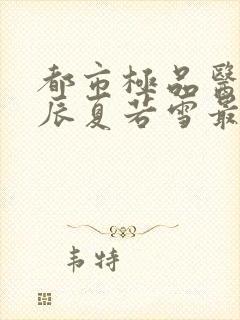 都市極品醫
辰夏若雪最
韦特